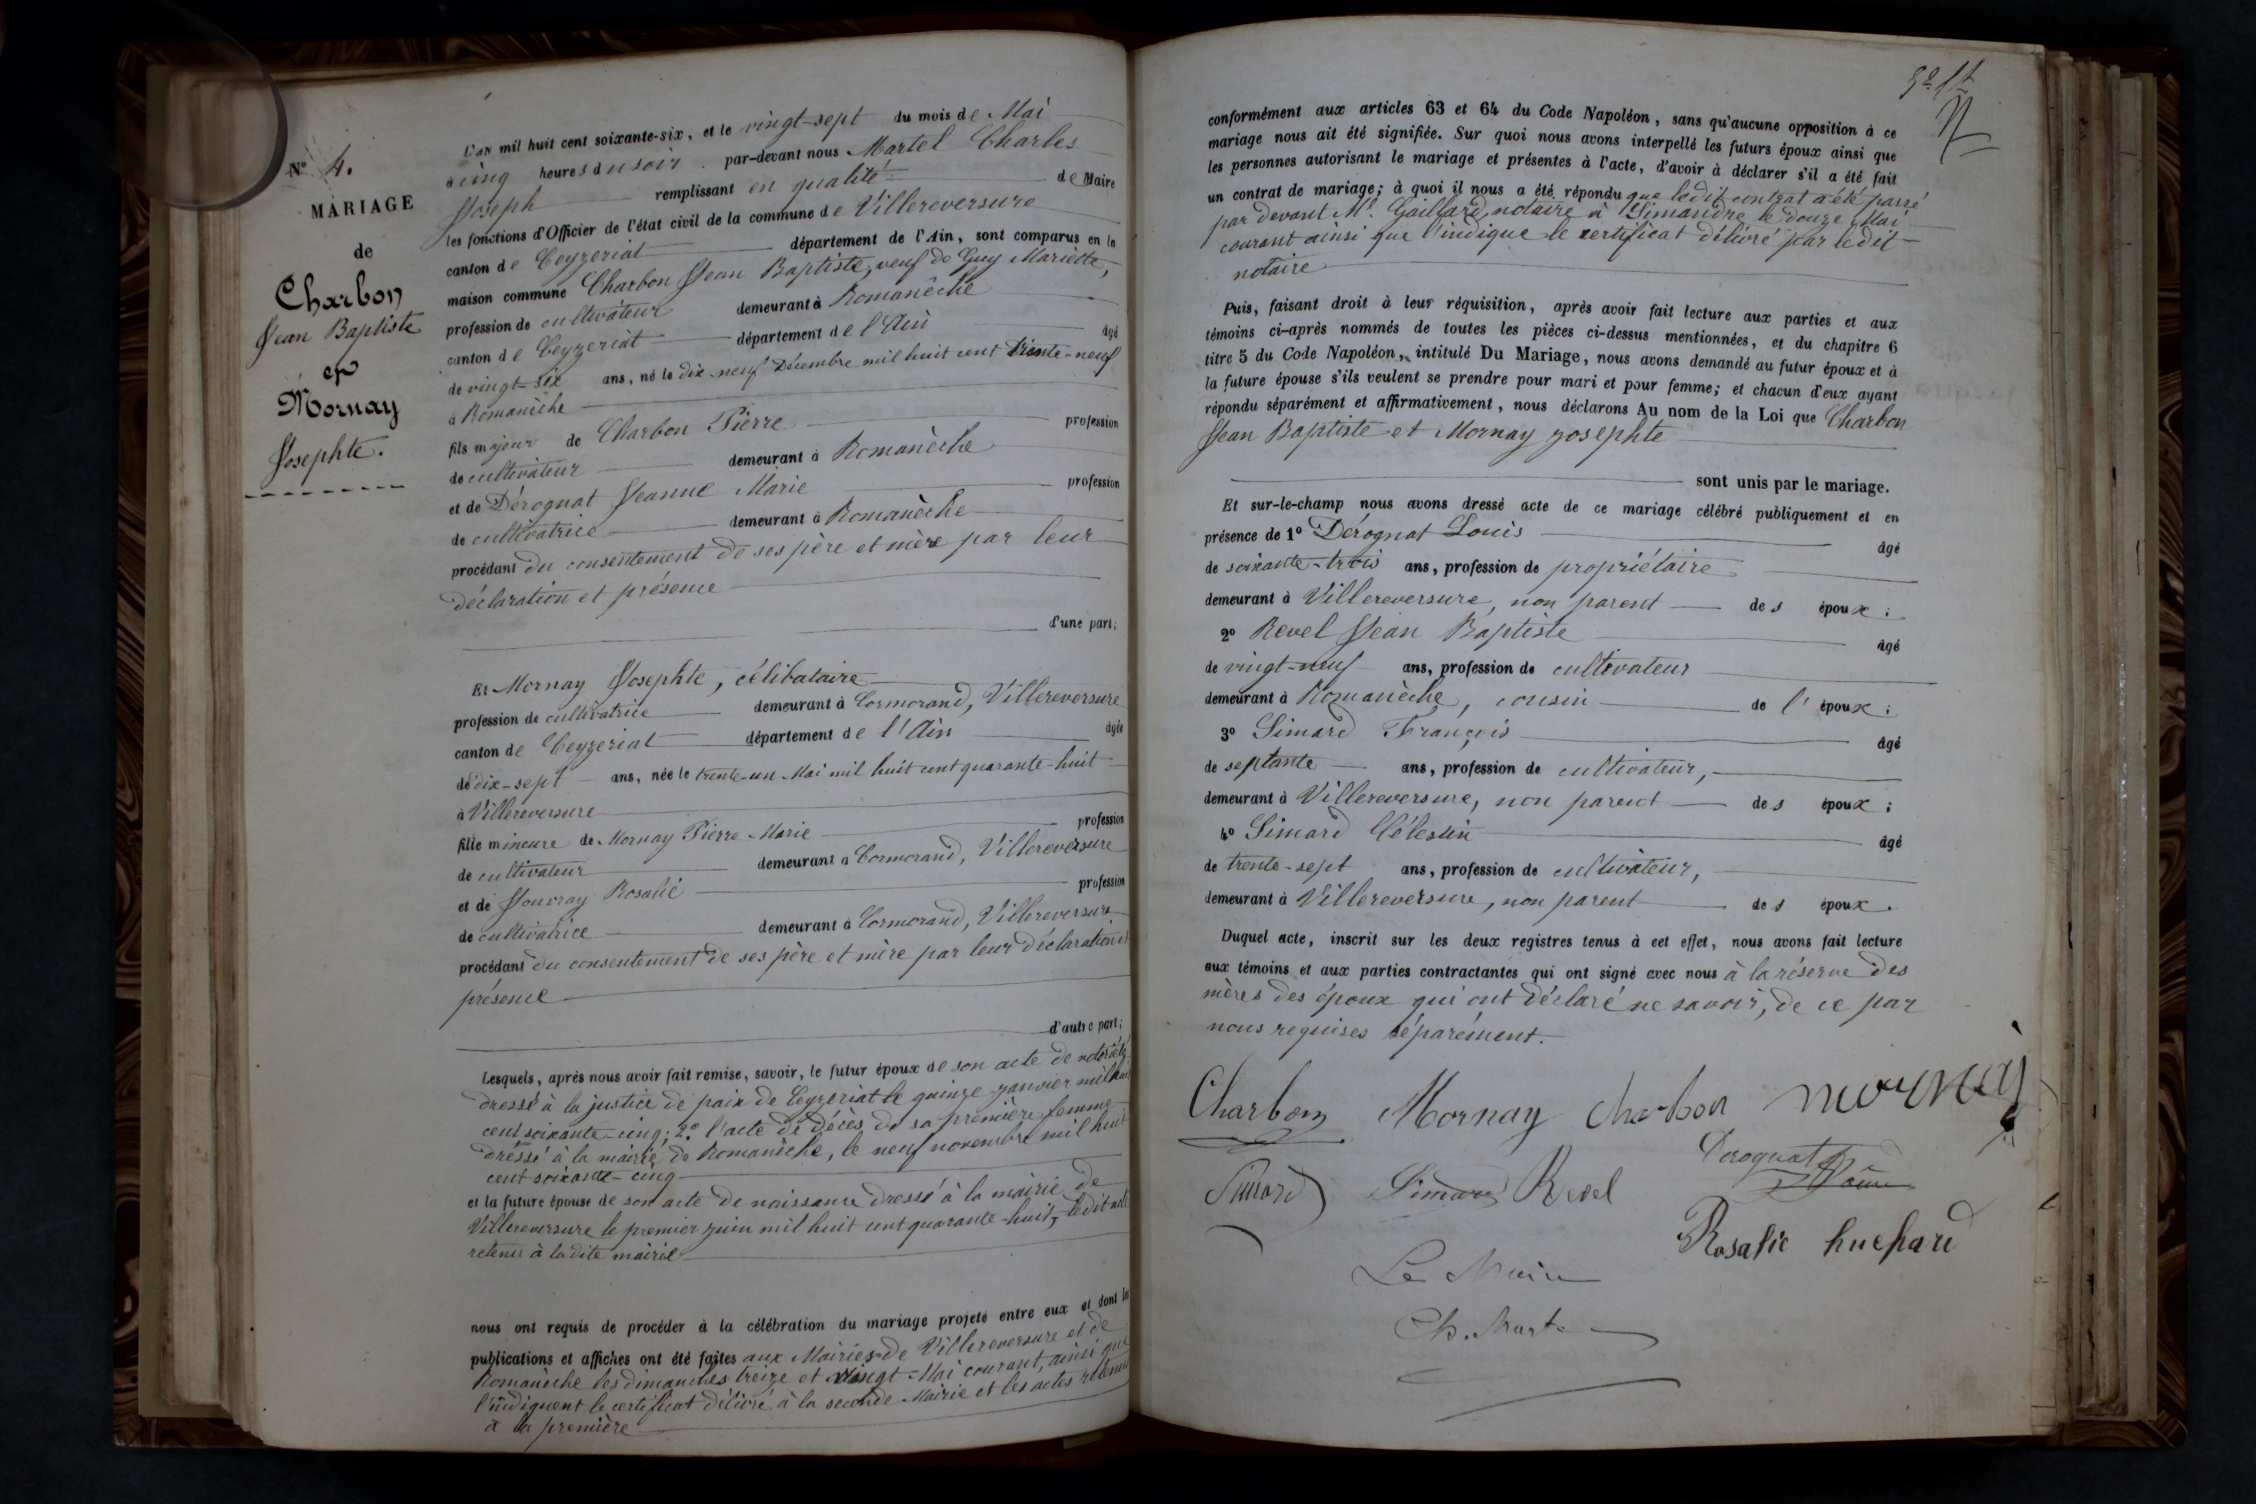 N° 4.
MARIAGE
de
Charbon
Jean Baptiste
et
Mornay
Josephte.
L'an mil huit cent soixante-six, et le vingt-sept du mois de Mai
à cinq heures du soir par-devant nous Martel Charles
Joseph remplissant en qualité de Maire
les fonctions d'Officier de l'état civil de la commune de Villereversure
canton de Ceyzeriat département de l'Ain, sont comparus en la
maison commune Charbon Jean Baptiste, veuf de Guy Mariette,
profession de cultivateur demeurant à Romanèche
canton de Ceyzeriat département de l'Ain âgé
de vingt-six ans, né le dix-neuf Décembre mil huit cent trente-neuf
à Romanèche
fils majeur de Charbon Pierre profession
de cultivateur demeurant à Romanèche
et de Dérognat Jeanne Marie profession
de cultivatrice demeurant à Romanèche
procédant du consentement de ses père et mère par leur
déclaration et présence
d'une part;
Et Mornay Josephte, célibataire
profession de cultivatrice demeurant à Cormorand, Villereversure
canton de Ceyzeriat département de l'Ain âgée
de dix-sept ans, née le trente-un Mai mil huit cent quarante-huit
à Villereversure
fille mineure de Mornay Pierre-Marie profession
de cultivateur demeurant à Cormorand, Villereversure
et de Jouvray Rosalie profession
de cultivatrice demeurant à Cormorand, Villereversure
procédant du consentement de ses père et mère par leur déclaration et
présence
d'autre part;
Lesquels, après nous avoir fait remise, savoir, le futur époux de son acte de notoriété
dressé à la justice de paix de Ceyzeriat le quinze janvier mil huit
cent soixante-cinq; 2° l'acte de décès de sa première femme
dressé à la mairie de Romanèche, le neuf novembre mil huit
cent soixante-cinq
et la future épouse de son acte de naissance dressé à la mairie de
Villereversure le premier juin mil huit cent quarante-huit, ledit acte
retenu à ladite mairie
nous ont requis de procéder à la célébration du mariage projeté entre eux et dont les
publications et affiches ont été faites aux Mairies de Villereversure et de
Romanèche les dimanches treize et vingt Mai courant, ainsi que
l'indiquent le certificat délivré à la seconde Mairie et les actes retenus
à la première
conformément aux articles 63 et 64 du Code Napoléon, sans qu'aucune opposition à ce
mariage nous ait été signifiée. Sur quoi nous avons interpellé les futurs époux ainsi que
les personnes autorisant le mariage et présentes à l'acte, d'avoir à déclarer s'il a été fait
un contrat de mariage; à quoi il nous a été répondu que ledit contrat a été passé
par devant Me. Gaillard, notaire à Simandre le douze Mai
courant ainsi que l'indique le certificat délivré par ledit
notaire
Puis, faisant droit à leur réquisition, après avoir fait lecture aux parties et aux
témoins ci-après nommés de toutes les pièces ci-dessus mentionnées, et du chapitre 6
titre 5 du Code Napoléon, intitulé Du Mariage, nous avons demandé au futur époux et à
la future épouse s'ils veulent se prendre pour mari et pour femme; et chacun d'eux ayant
répondu séparément et affirmativement, nous déclarons Au nom de la Loi que Charbon
Jean Baptiste et Mornay Josephte
sont unis par le mariage.
Et sur-le-champ nous avons dressé acte de ce mariage célébré publiquement et en
présence de 1° Dérognat Louis âgé
de soixante-trois ans, profession de propriétaire
demeurant à Villereversure, non parent des époux;
2° Revel Jean Baptiste âgé
de vingt-neuf ans, profession de cultivateur
demeurant à Romanèche, cousin de l'époux;
3° Simard François âgé
de septante ans, profession de cultivateur,
demeurant à Villereversure, non parent des époux;
4° Simard Célestin âgé
de trente-sept ans, profession de cultivateur,
demeurant à Villereversure, non parent des époux.
Duquel acte, inscrit sur les deux registres tenus à cet effet, nous avons fait lecture
aux témoins et aux parties contractantes qui ont signé avec nous à la réserve des
mères des époux qui ont déclaré ne savoir, de ce par
nous requises séparément.
Charbon Mornay charbon mornay
Simard Simard Revel Derognat Louis
Rosalie huchard
Le Maire
Ch. Martel